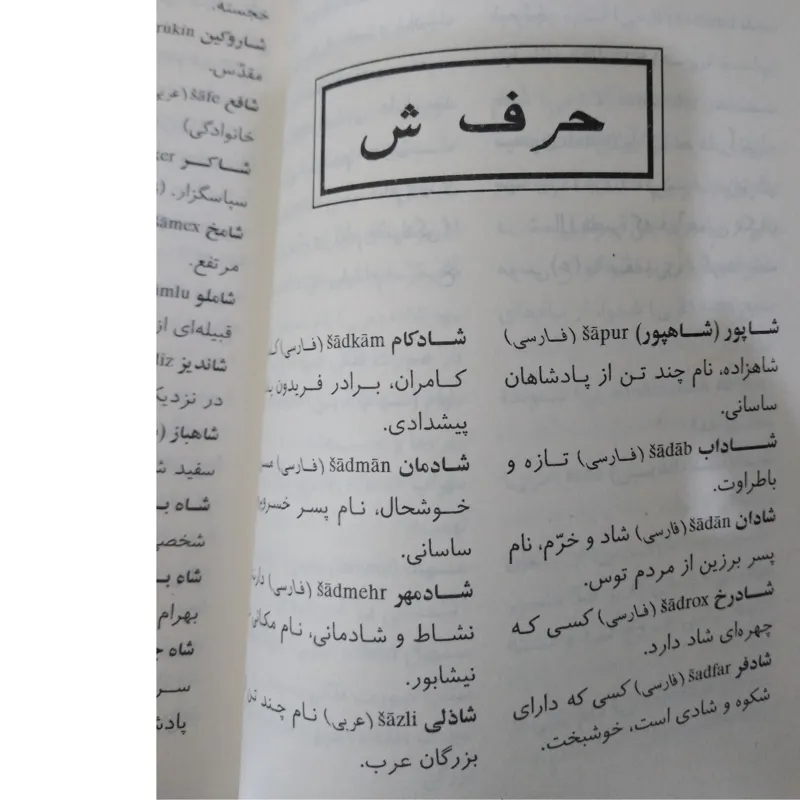 حرف ش
شاپور (شاهپور) šāpur (فارسی)
شاهزاده، نام چند تن از پادشاهان
ساسانی.
شاداب šādāb (فارسی) تازه و
باطراوت.
شادان šādān (فارسی) شاد و خرّم، نام
پسر برزین از مردم توس.
شادرخ šādrox (فارسی) کسی که
چهره‌ای شاد دارد.
شادفر šadfar (فارسی) کسی که دارای
شکوه و شادی است، خوشبخت.
شادکام šādkām (فارسی)
کامران، برادر فریدون
پیشدادی.
شادمان šādmān (فارسی)
خوشحال، نام پسر خسرو
ساسانی.
شادمهر šādmehr (فارسی)
نشاط و شادمانی، نام مکانی
نیشابور.
شاذلی šāzli (عربی) نام چند تن
بزرگان عرب.
خجسته.
شاروکین
مقدّس.
شافع šāfe
خانوادگی)
شاکر
سپاسگزار.
شامخ
مرتفع.
شاملو
قبیله‌ای از
شاندیز
در نزدیک
شاهباز
سفید
شاه
شخصی
شاه
بهرام
شاه
سر